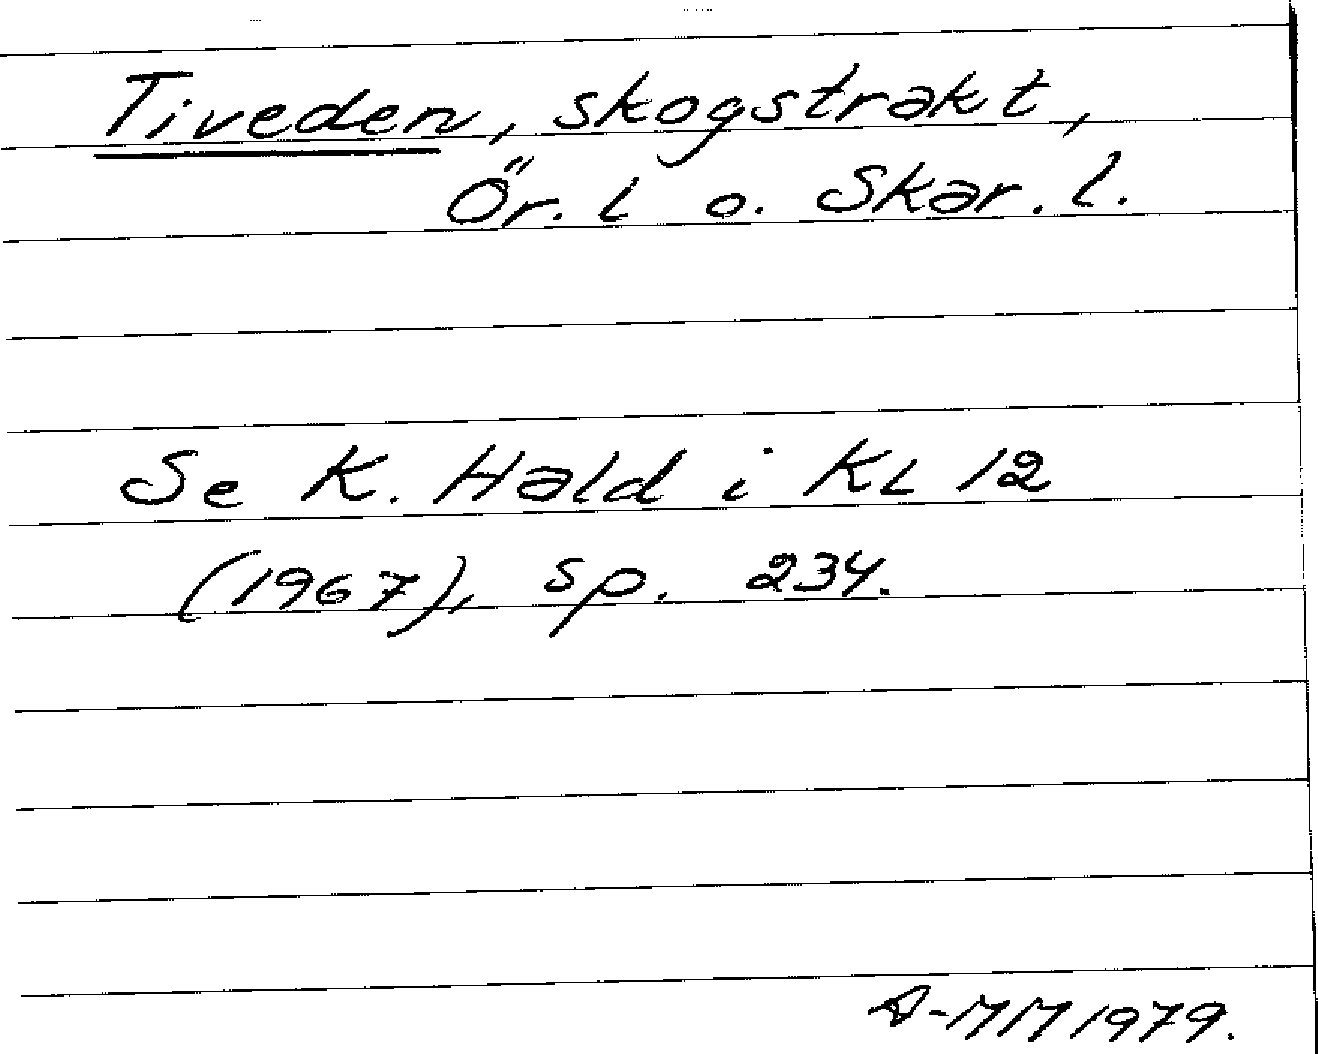 Tiveden, skogstrakt,
Ör. l o. Skar. l.
Se K. Hald i KL 12
(1967), sp. 234.
A-MM 1979.